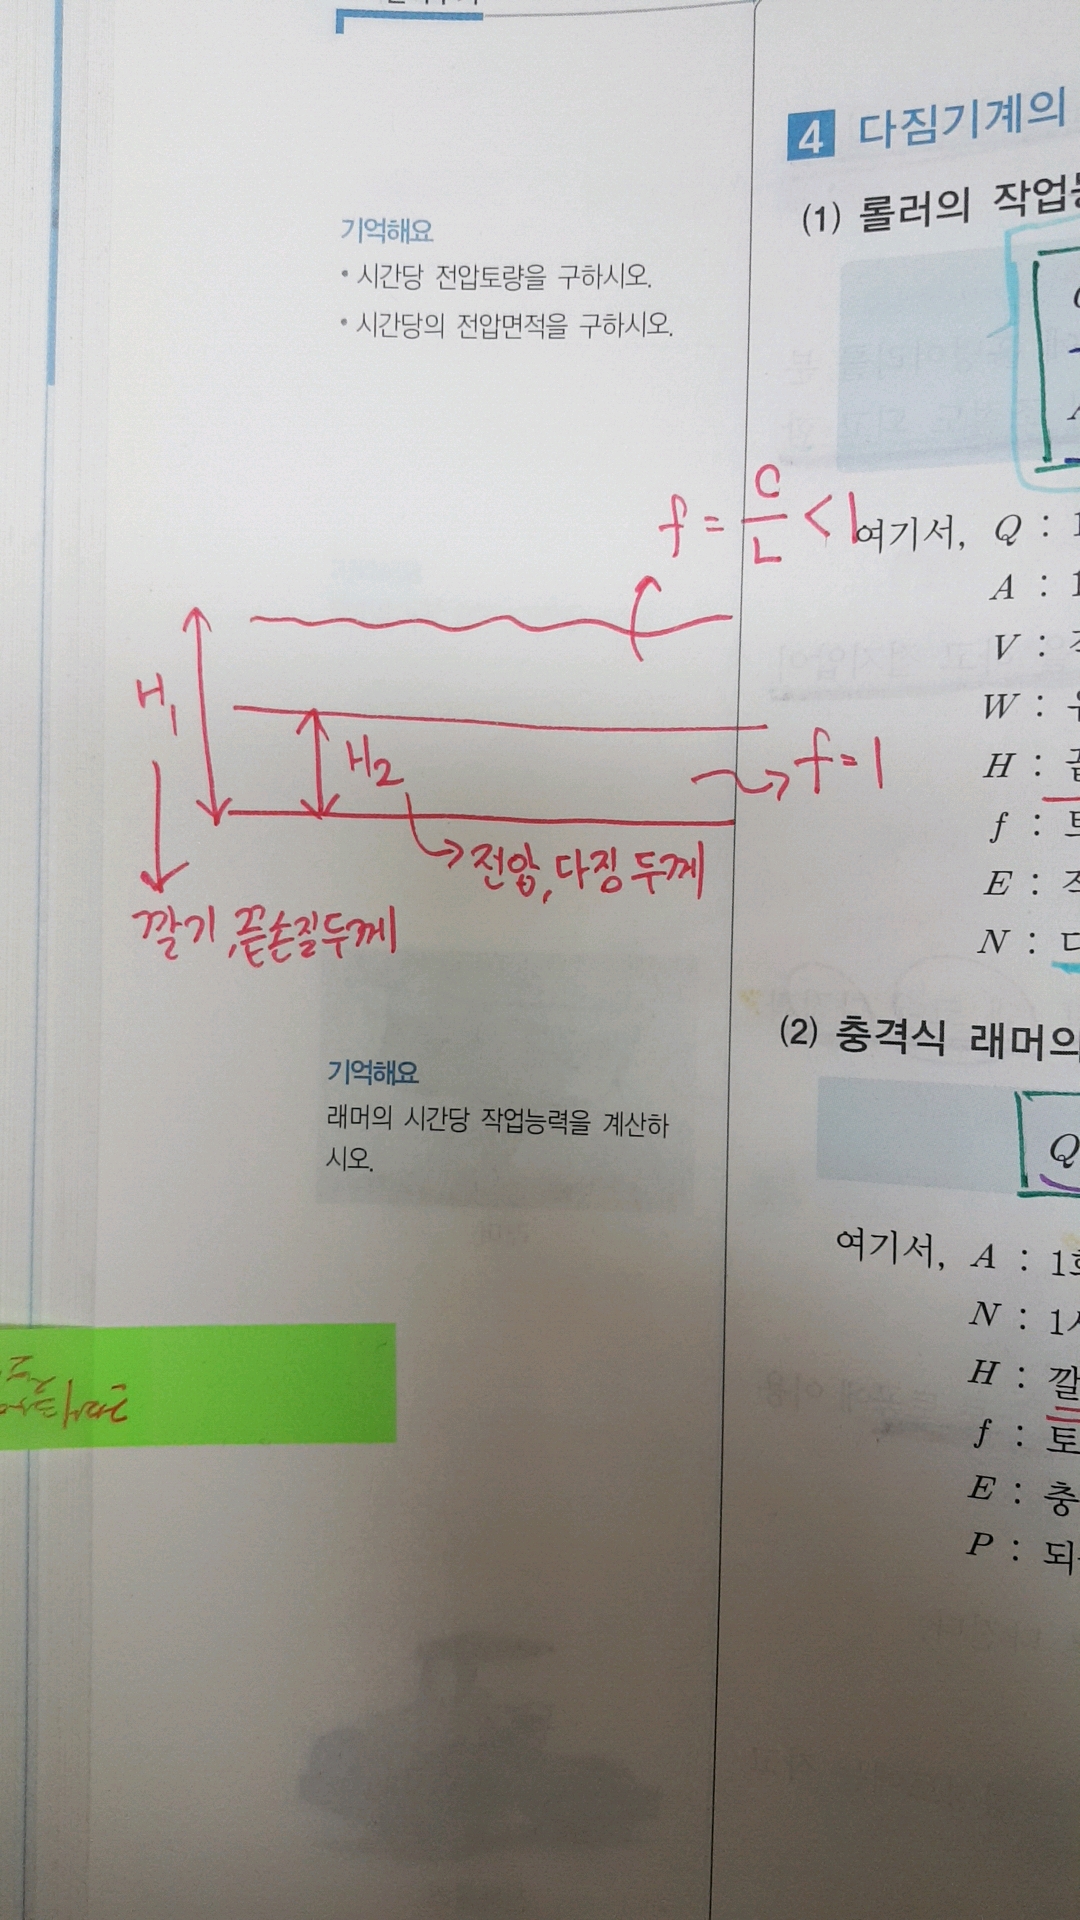 기억해요
• 시간당 전압토량을 구하시오.
• 시간당의 전압면적을 구하시오.
f = C/L < 1
H₁
H₂
f = 1
전압, 다짐 두께
깔기, 끝손질두께
기억해요
래머의 시간당 작업능력을 계산하
시오.
4 다짐기계의
(1) 롤러의 작업
여기서, Q :
A :
V :
W :
H :
f :
E :
N :
(2) 충격식 래머의
Q
여기서, A : 1
N : 1
H : 깔
f : 토
E : 충
P : 되